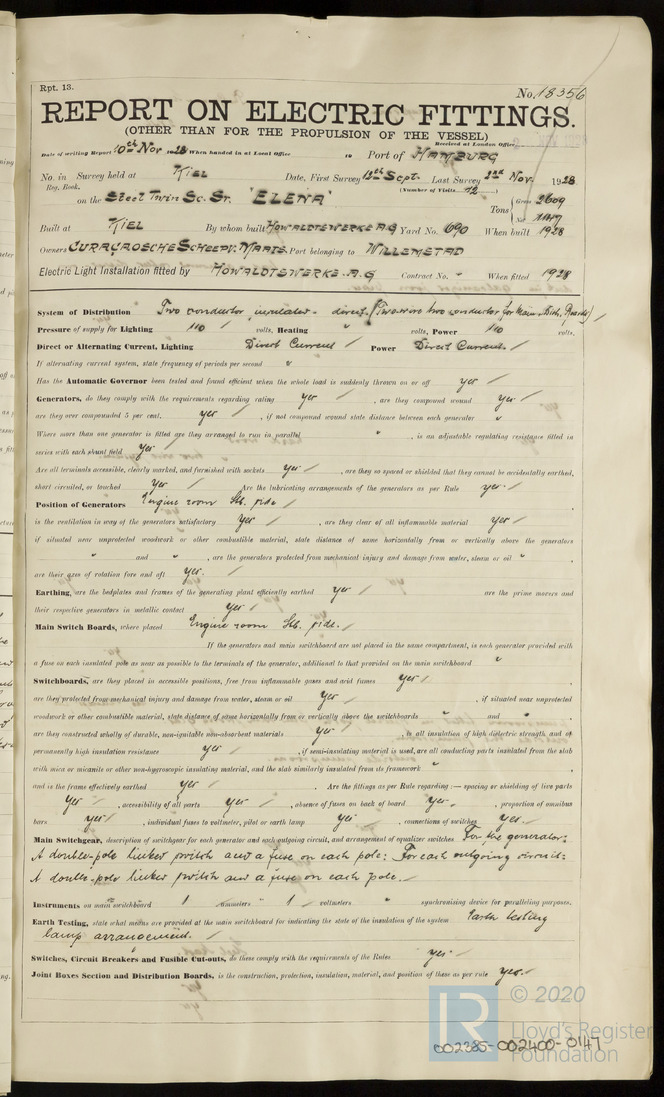 Rpt. 13.
No. 18356
REPORT ON ELECTRIC FITTINGS.
(OTHER THAN FOR THE PROPULSION OF THE VESSEL)
Received at London Office
Date of writing Report 10th Nov 1928 When handed in at Local Office 19 Port of HAMBURG
No. in Reg. Book. Survey held at KIEL Date, First Survey 13th Sept. Last Survey Nov. 1928
(Number of Visits 12)
on the Steel Twin Sc. Sr. "ELENA" Tons { Gross 2609 Net 1147
Built at KIEL By whom built HOWALDTSWERKE A.G Yard No. 690 When built 1928
Owners CURAÇAOSCHE SCHEEPV. MAATS. Port belonging to WILLEMSTAD
Electric Light Installation fitted by HOWALDTSWERKE A.G Contract No. " When fitted 1928
System of Distribution Two conductor insulated - direct. (Two wire two conductor for Main, Dist, Boards)
Pressure of supply for Lighting 110 volts, Heating " volts, Power 110 volts.
Direct or Alternating Current, Lighting Direct Current Power Direct Current.
If alternating current system, state frequency of periods per second "
Has the Automatic Governor been tested and found efficient when the whole load is suddenly thrown on or off yes
Generators, do they comply with the requirements regarding rating yes , are they compound wound yes
are they over compounded 5 per cent. yes , if not compound wound state distance between each generator "
Where more than one generator is fitted are they arranged to run in parallel " , is an adjustable regulating resistance fitted in
series with each shunt field yes
Are all terminals accessible, clearly marked, and furnished with sockets yes , are they so spaced or shielded that they cannot be accidentally earthed,
short circuited, or touched yes Are the lubricating arrangements of the generators as per Rule yes
Position of Generators Engine room Stb. side
is the ventilation in way of the generators satisfactory yes , are they clear of all inflammable material yes
if situated near unprotected woodwork or other combustible material, state distance of same horizontally from or vertically above the generators
" and " , are the generators protected from mechanical injury and damage from water, steam or oil "
are their axes of rotation fore and aft yes.
Earthing, are the bedplates and frames of the generating plant efficiently earthed yes are the prime movers and
their respective generators in metallic contact yes
Main Switch Boards, where placed Engine room Stb. side.
If the generators and main switchboard are not placed in the same compartment, is each generator provided with
a fuse on each insulated pole as near as possible to the terminals of the generator, additional to that provided on the main switchboard "
Switchboards, are they placed in accessible positions, free from inflammable gases and acid fumes yes
are they protected from mechanical injury and damage from water, steam or oil yes , if situated near unprotected
woodwork or other combustible material, state distance of same horizontally from or vertically above the switchboards " and "
are they constructed wholly of durable, non-ignitable non-absorbent materials yes is all insulation of high dielectric strength and of
permanently high insulation resistance yes , if semi-insulating material is used, are all conducting parts insulated from the slab
with mica or micanite or other non-hygroscopic insulating material, and the slab similarly insulated from its framework "
and is the frame effectively earthed yes . Are the fittings as per Rule regarding :— spacing or shielding of live parts
yes , accessibility of all parts yes , absence of fuses on back of board yes , proportion of omnibus
bars yes , individual fuses to voltmeter, pilot or earth lamp yes , connections of switches yes.
Main Switchgear, description of switchgear for each generator and each outgoing circuit, and arrangement of equalizer switches For the generator:
A double-pole linked switch and a fuse on each pole: For each outgoing circuit:
A double-pole linked switch and a fuse on each pole.
Instruments on main switchboard 1 ammeters 1 voltmeters " synchronising device for paralleling purposes.
Earth Testing, state what means are provided at the main switchboard for indicating the state of the insulation of the system Earth testing
lamp arrangement.
Switches, Circuit Breakers and Fusible Cut-outs, do these comply with the requirements of the Rules yes
Joint Boxes Section and Distribution Boards, is the construction, protection, insulation, material, and position of these as per rule yes
LR
© 2020
Lloyd's Register
Foundation
002385-002400-0147